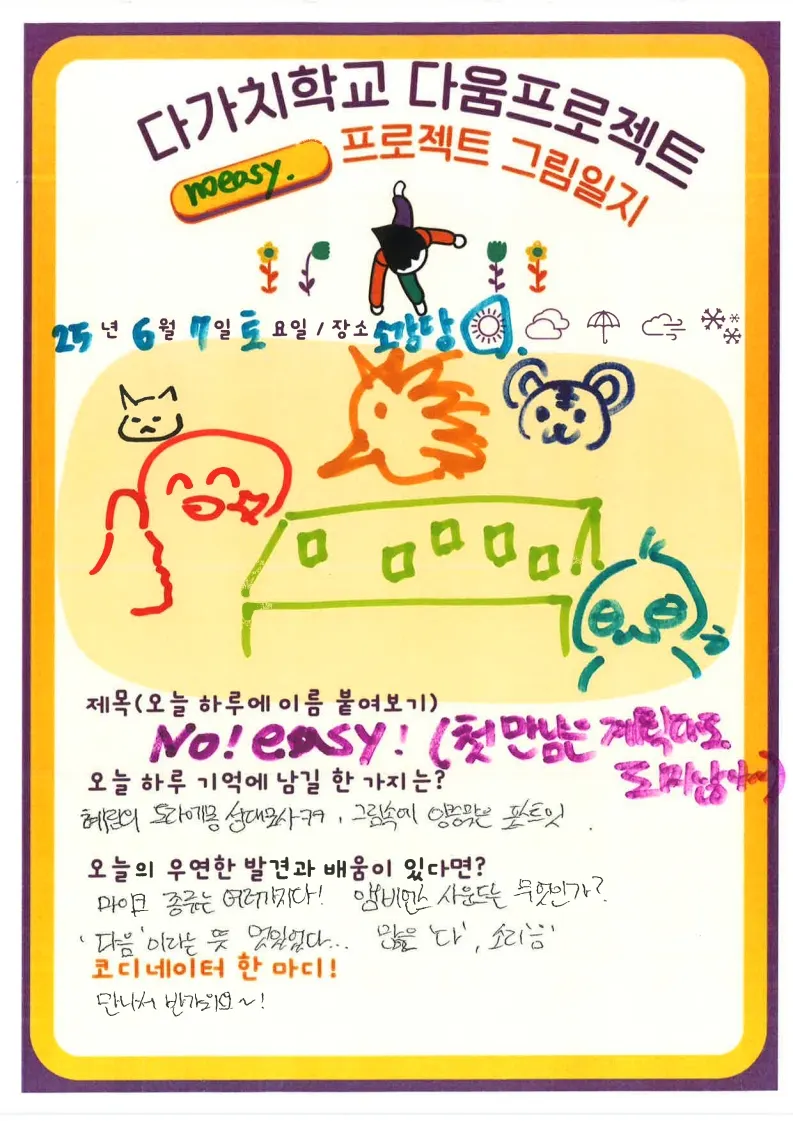 다가치학교 다움프로젝트
프로젝트 그림일지
noeasy.
25년 6월 7일 토요일 / 장소 소강당
제목(오늘 하루에 이름 붙여보기)
No! easy! (첫만남은 계획대로
되지않아~)
오늘 하루 기억에 남길 한 가지는?
혜림의 도라에몽 성대모사ㅋㅋ, 그림속에 앙증맞은 포스트잇.
오늘의 우연한 발견과 배움이 있다면?
마이크 종류는 여러가지다! 앰비언스 사운드는 무엇인가?
'다음'이라는 뜻 멋있었다... 많을 '다', 소리'음'
코디네이터 한 마디!
만나서 반가워요~!